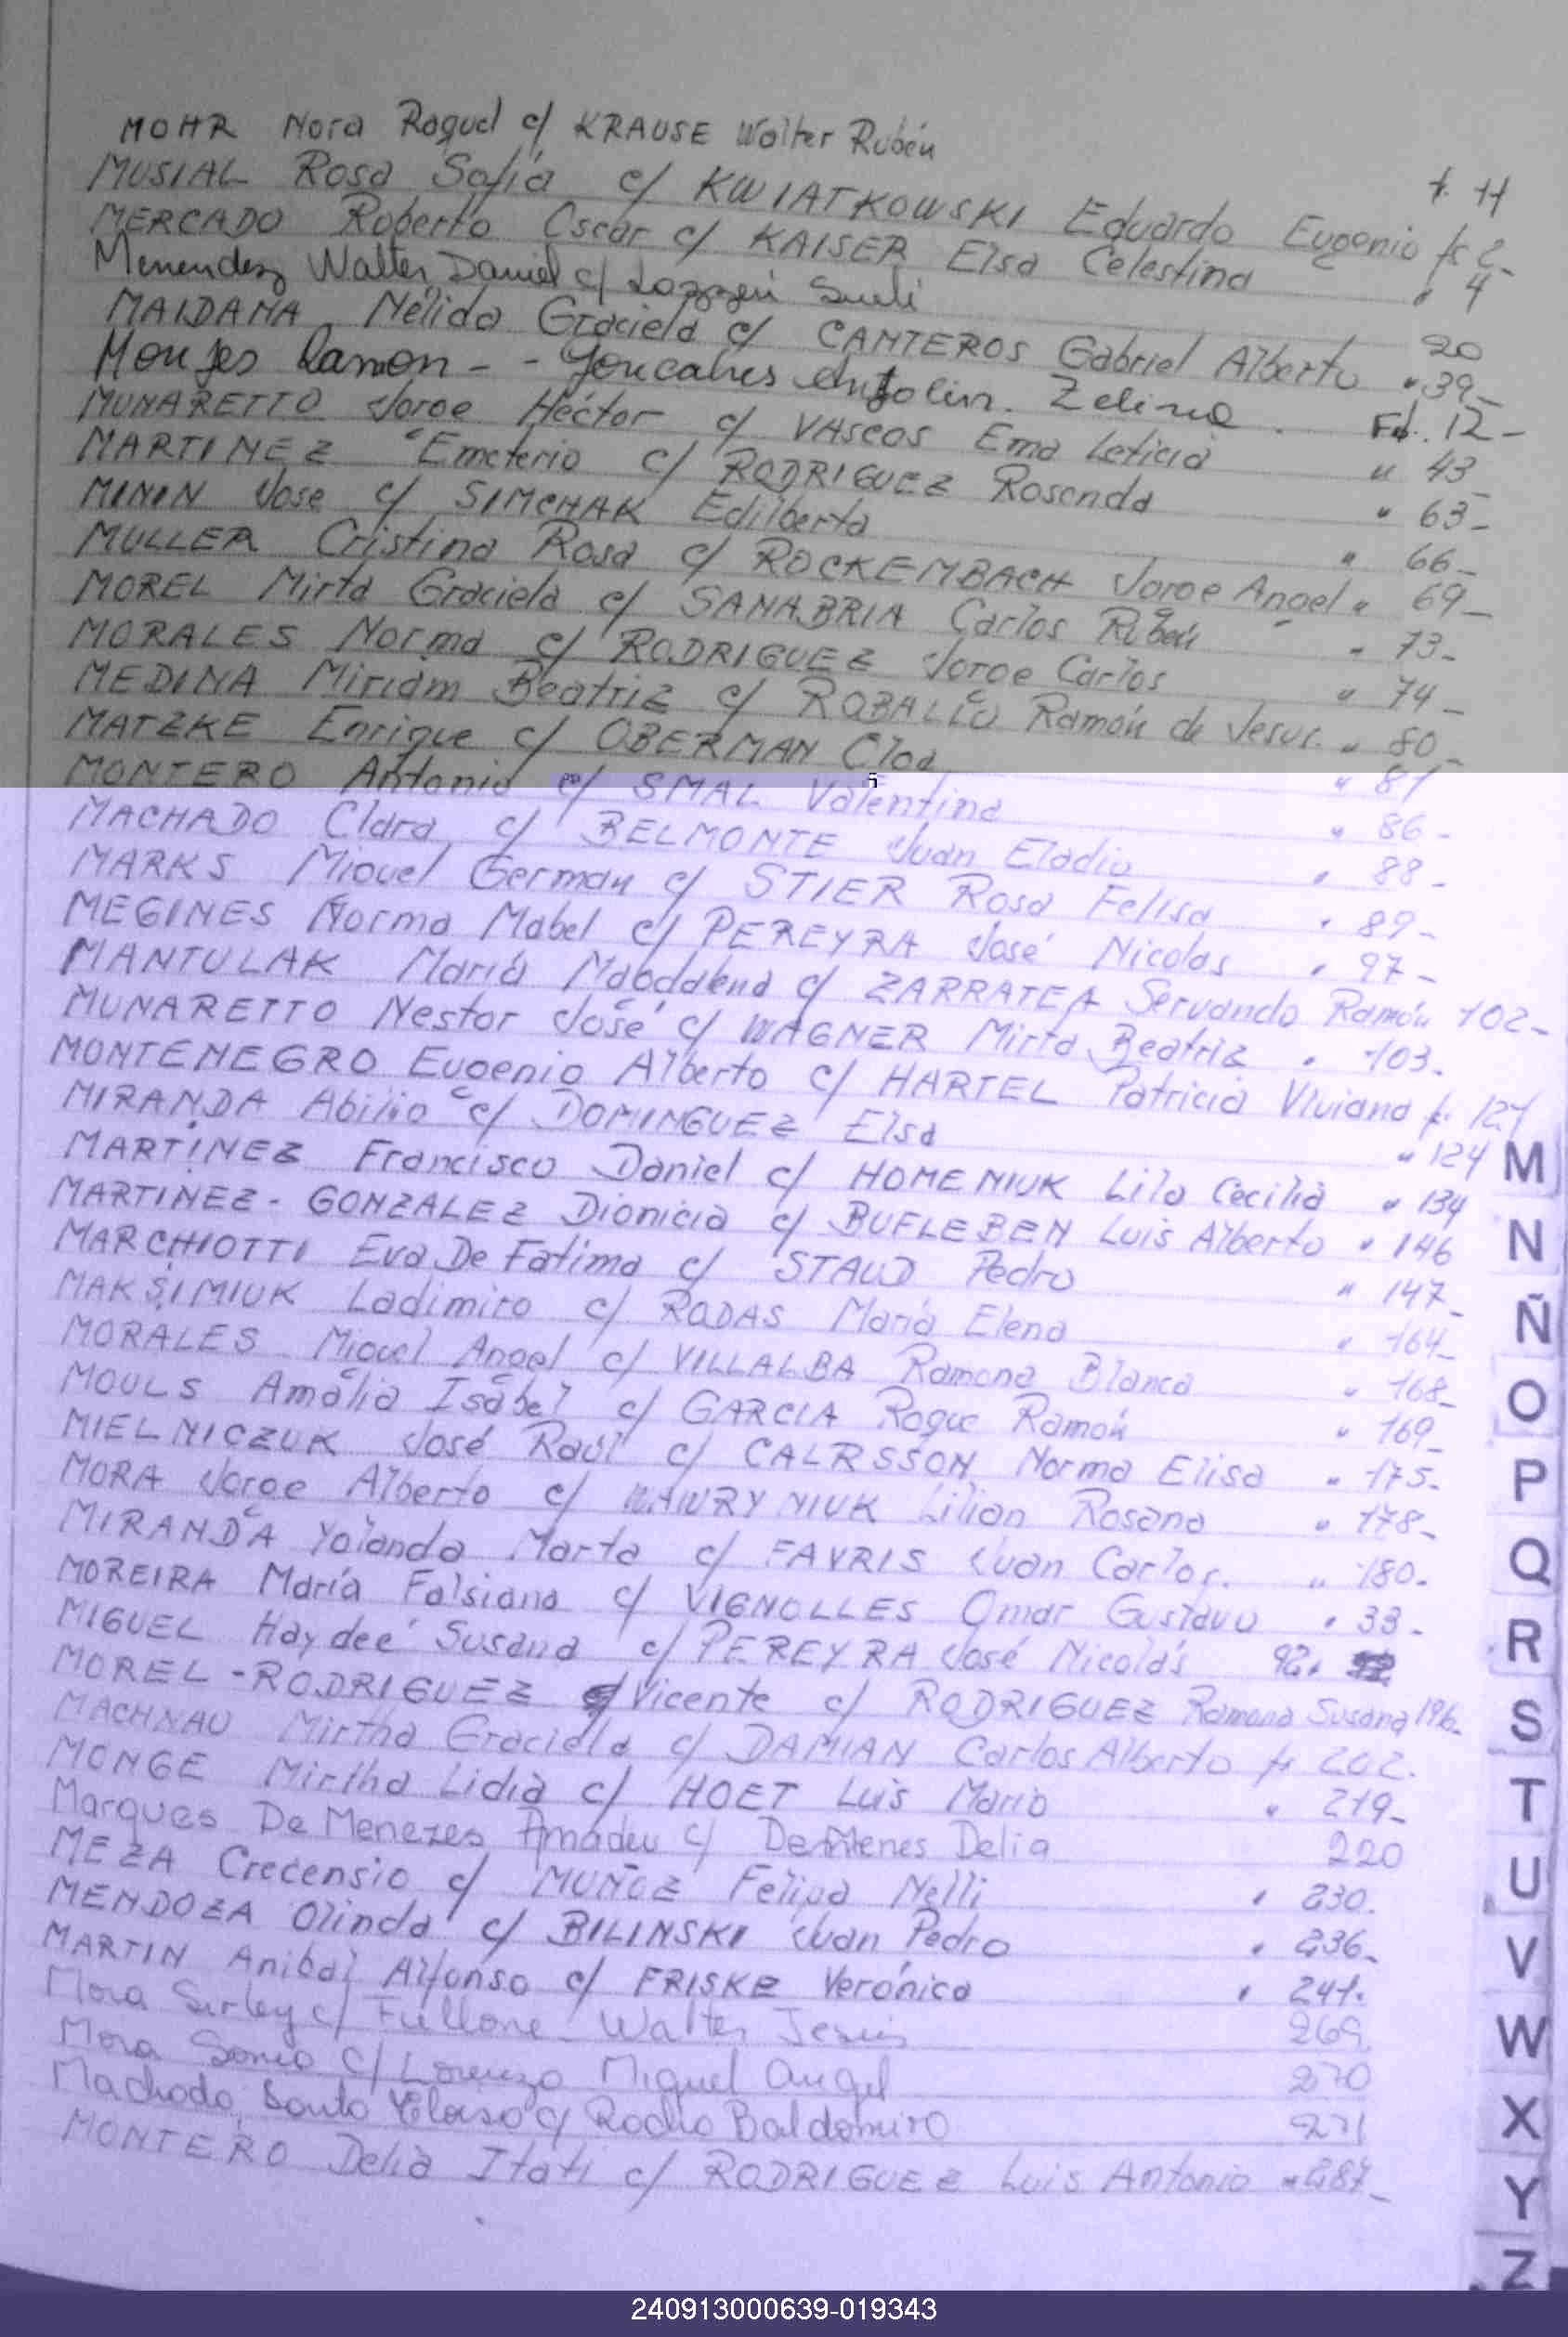 MOHR Nora Raquel c/ KRAUSE Walter Rubén f. 11
MUSIAL Rosa Sofía c/ KWIATKOWSKI Eduardo Eugenio fs 2-
MERCADO Roberto Oscar c/ KAISER Elsa Celestina " 4
Menendez Walter Daniel c/ Sueli 20
MAIDANA Nélida Graciela c/ CANTEROS Gabriel Alberto " 39-
Ramon - - Zelina. Fol. 12-
MUNARETTO Jorge Héctor c/ VASCOS Ema Leticia " 43-
MARTINEZ Emeterio c/ RODRIGUEZ Rosenda " 63-
MININ Jose c/ SIMCHAK Edilberta " 66-
MULLER Cristina Rosa c/ ROCKEMBACH Jorge Angel " 69-
MOREL Mirta Graciela c/ SANABRIA Carlos Rubén " 73-
MORALES Norma c/ RODRIGUEZ Jorge Carlos " 74-
MEDINA Miriam Beatriz c/ ROBALLO Ramón de Jesus. " 80-
MATZKE Enrique c/ OBERMAN Cloa " 81
MONTERO Antonio c/ SMAL Valentina " 86-
MACHADO Clara c/ BELMONTE Juan Eladio " 88-
MARKS Miguel German c/ STIER Rosa Felisa " 89-
MEGINES Norma Mabel c/ PEREYRA José Nicolas " 97-
MANTULAK María Magdalena c/ ZARRATEA Servando Ramón 102-
MUNARETTO Nestor José c/ WAGNER Mirta Beatriz " 103.
MONTENEGRO Eugenio Alberto c/ HARTEL Patricia Viviana f. 121
MIRANDA Abilio c/ DOMINGUEZ Elsa " 124
MARTINEZ Francisco Daniel c/ HOMENIUK Lila Cecilia " 134
MARTINEZ - GONZALEZ Dionicia c/ BUFLEBEN Luis Alberto " 146
MARCHIOTTI Eva De Fatima c/ STAUD Pedro " 147-
MAKSIMIUK Ladimiro c/ RODAS María Elena " 164-
MORALES Miguel Angel c/ VILLALBA Ramona Blanca " 168-
MOULS Amalia Isabel c/ GARCIA Roque Ramón " 169-
MIELNICZUK José Raúl c/ CALRSSON Norma Elisa " 175-
MORA Jorge Alberto c/ WAWRYNIUK Lilian Rosana " 178-
MIRANDA Yolanda Marta c/ FAVRIS Juan Carlos. " 180-
MOREIRA María Falsiana c/ VIGNOLLES Omar Gustavo " 33-
MIGUEL Haydeé Susana c/ PEREYRA José Nicolás 92.
MOREL - RODRIGUEZ Vicente c/ RODRIGUEZ Ramona Susana 196-
MACHNAU Mirtha Graciela c/ DAMIAN Carlos Alberto fs 202.
MONGE Mirtha Lidia c/ HOET Luis Mario " 219-
Marques De Menezes Amadeu c/ Delia 220
MEZA Crecensio c/ MUÑOZ Felipa Nelli " 230.
MENDOZA Olinda c/ BILINSKI Juan Pedro " 236-
MARTIN Anibal Alfonso c/ FRISKE Verónica " 241.
Mora Sirley c/ Fullone Walter Jesús 269
Mora Sonia c/ Lorenzo Miguel Angel 270
Machado, Santo c/ Rocho Baldomiro 271
MONTERO Delia Itatí c/ RODRIGUEZ Luis Antonio " 287-
M
N
Ñ
O
P
Q
R
S
T
U
V
W
X
Y
Z
240913000639-019343